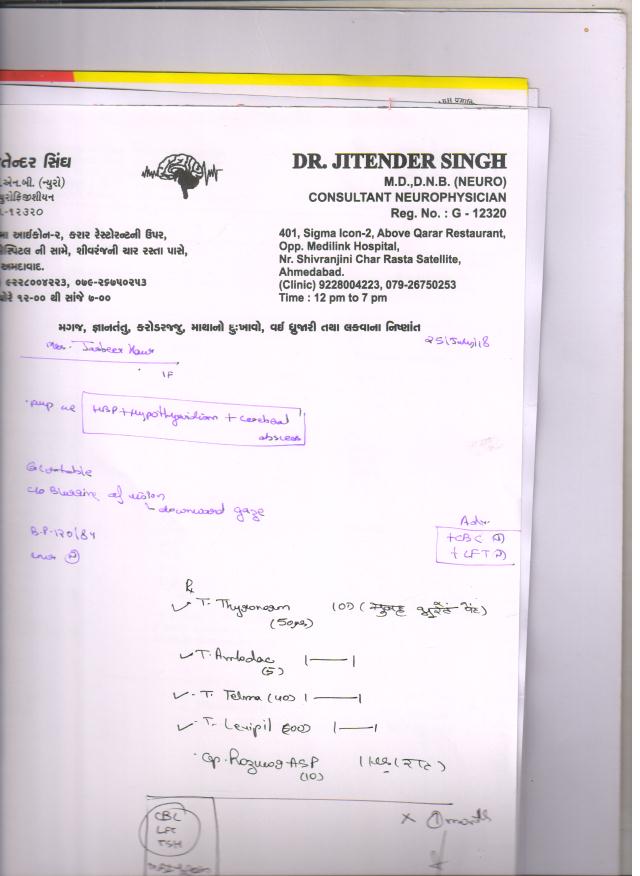 તેન્દર સિંઘ
.એન.બી. (ન્યુરો)
યુરોફિઝીશીયન
.-૧૨૩૨૦
મા આઈકોન-૨, કરાર રેસ્ટોરન્ટની ઉપર,
સ્પિટલ ની સામે, શીવરંજની ચાર રસ્તા પાસે,
અમદાવાદ.
૯૨૨૮૦૦૪૨૨૩, ૦૭૯-૨૬૭૫૦૨૫૩
પોરે ૧૨-૦૦ થી સાંજે ૭-૦૦
DR. JITENDER SINGH
M.D.,D.N.B. (NEURO)
CONSULTANT NEUROPHYSICIAN
Reg. No. : G - 12320
401, Sigma Icon-2, Above Qarar Restaurant,
Opp. Medilink Hospital,
Nr. Shivranjini Char Rasta Satellite,
Ahmedabad.
(Clinic) 9228004223, 079-26750253
Time : 12 pm to 7 pm
મગજ, જ્ઞાનતંતુ, કરોડરજજુ, માથાનો દુઃખાવો, વઈ ધ્રુજારી તથા લકવાના નિષ્ણાંત
Jasbeer Kaur
25/July/18
HBP + Hypothyroidism + cerebral
abscess
c/o Blurring of vision
downward gaze
B.P-120/84
Adv.
+ CBC
+ LFT
Rx
T. Thyronorm
(50μg)
T. Amlodac
(5)
1——1
T. Telma (40) 1——1
T. Levipil 500 1——1
Cp. Rozucor ASP
(10)
CBC
LFT
TSH
× 1 month